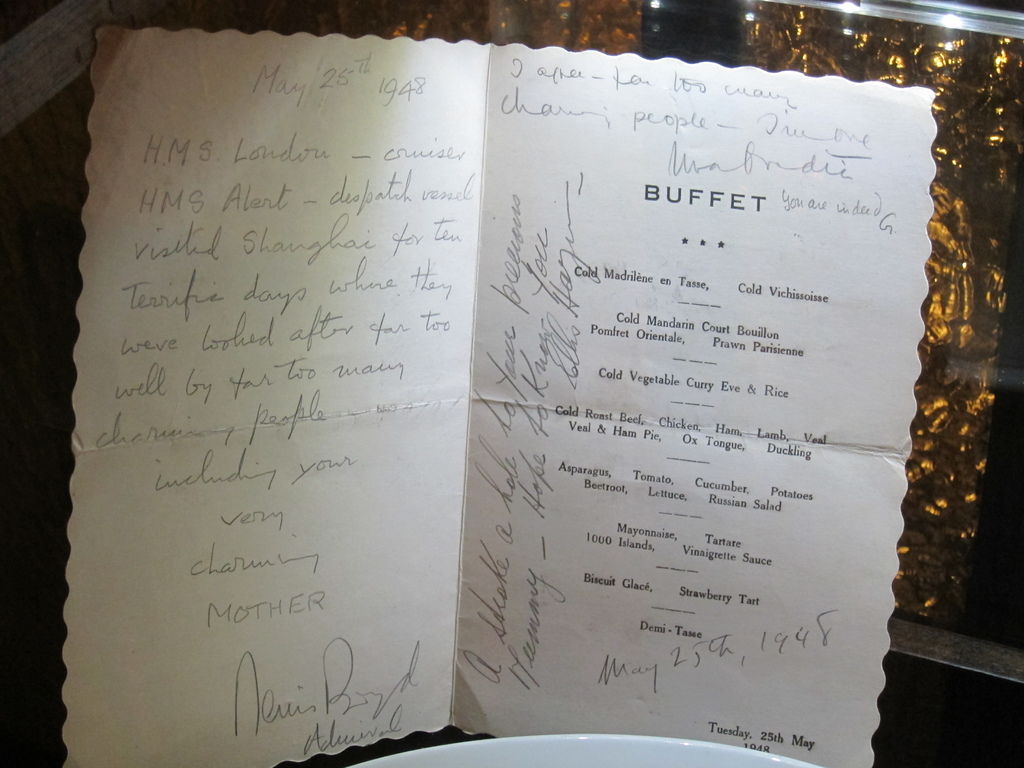 May 25th 1948
H.M.S. London – cruiser
HMS Alert – despatch vessel
visited Shanghai for ten
Terrific days where they
were looked after far too
well by far too many
charming people
including your
very
charming
MOTHER
Denis Boyd
Admiral
I agree – far too many
charming people – I'm one
You are indeed G.
BUFFET
* * *
Cold Madrilène en Tasse, Cold Vichissoisse
Cold Mandarin Court Bouillon
Pomfret Orientale, Prawn Parisienne
Cold Vegetable Curry Eve & Rice
Cold Roast Beef, Chicken, Ham, Lamb, Veal
Veal & Ham Pie, Ox Tongue, Duckling
Asparagus, Tomato, Cucumber, Potatoes
Beetroot, Lettuce, Russian Salad
Mayonnaise, Tartare
1000 Islands, Vinaigrette Sauce
Biscuit Glacé, Strawberry Tart
Demi-Tasse
May 25th, 1948
Tuesday, 25th May
1948
A shake a hole to your precious
Mummy – Hope to Know You
Ellis Hayim